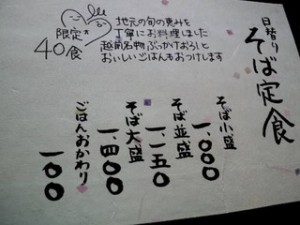 日替り
そば定食
限定*
40食
地元の旬の恵みを
丁寧にお料理しました
越前名物ぶっかけおろしと
おいしいごはんをおつけします
そば小盛
一、〇〇〇
そば並盛
一、一五〇
そば大盛
一、四〇〇
ごはんおかわり
一〇〇